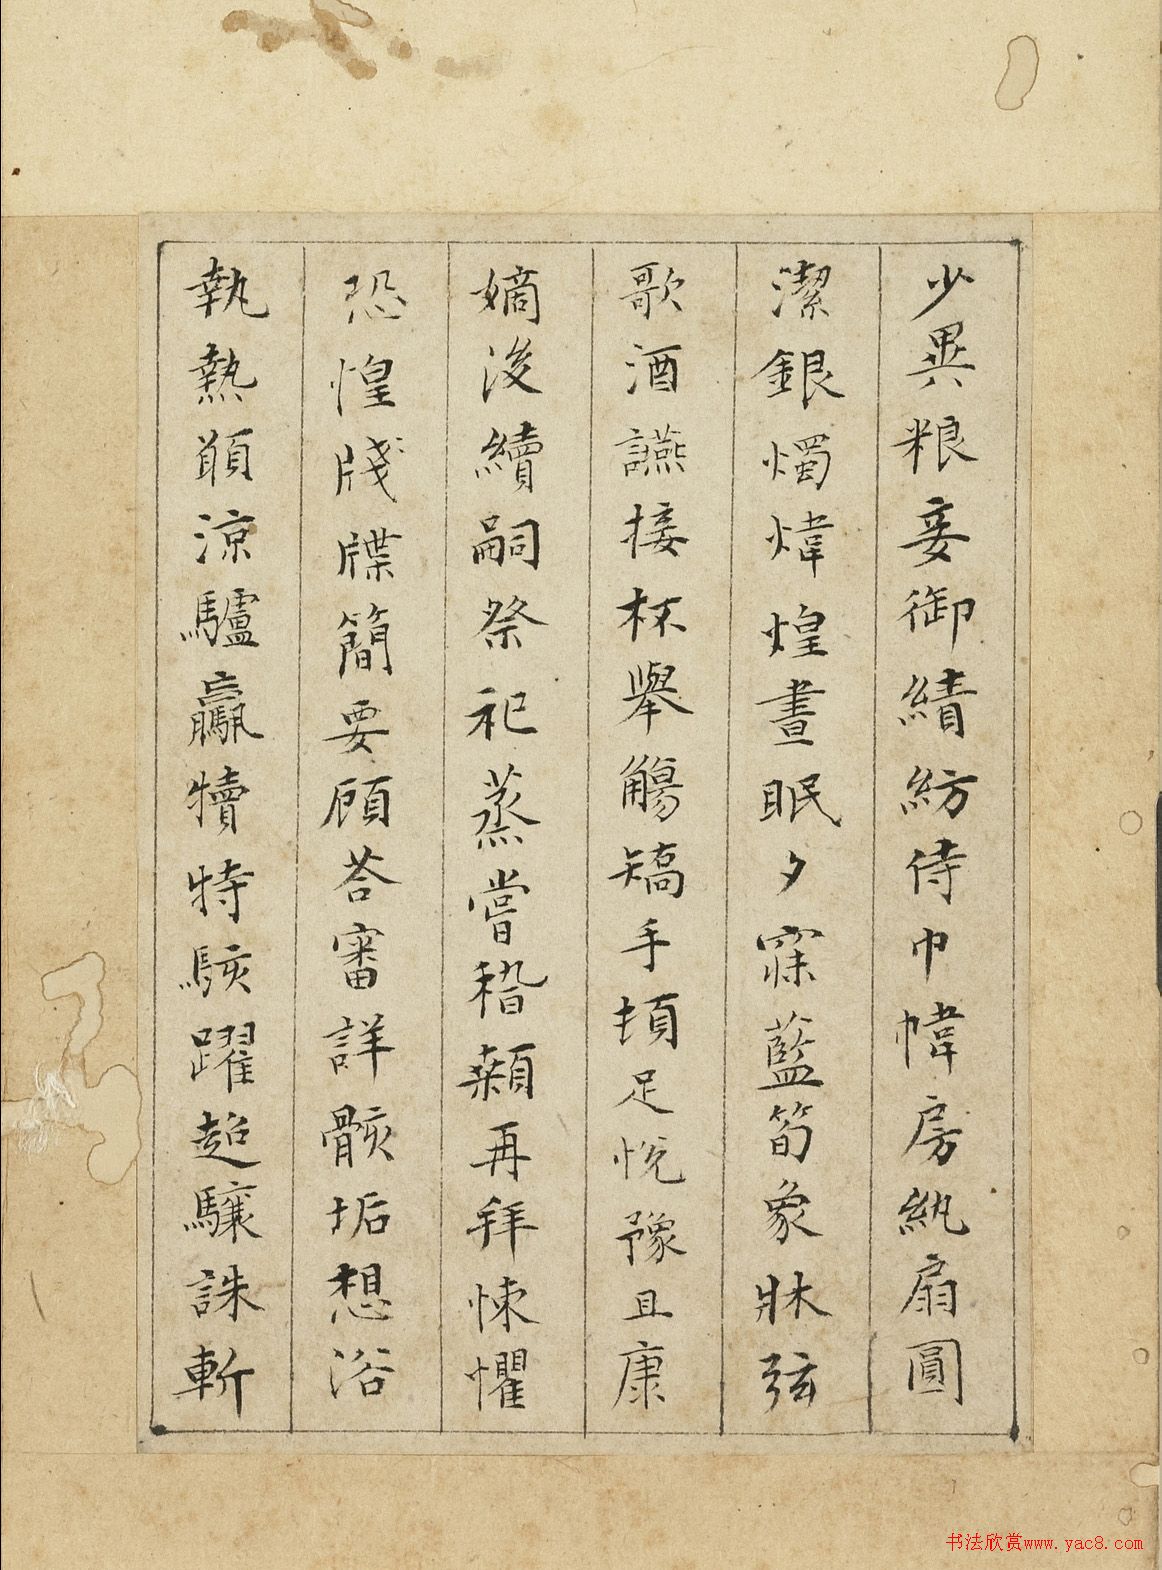 少異粮妾御績紡侍巾幃房紈扇圓
潔銀燭煒煌晝眠夕寐藍筍象牀弦
歌酒讌接杯舉觴矯手頓足悅豫且康
嫡後續嗣祭祀蒸嘗稽顙再拜悚懼
恐惶牋牒簡要顧荅審詳骸垢想浴
執熱願涼驢騾犢特駭躍超驤誅斬
书法欣赏www.yac8.com